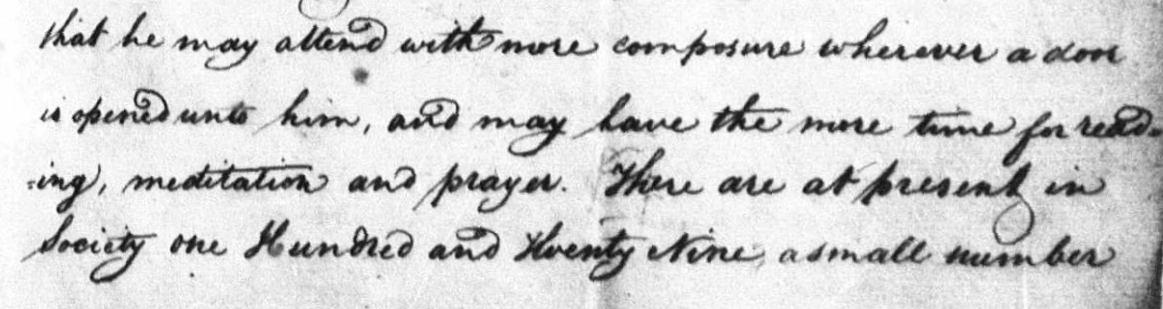 that he may attend with more composure wherever a door
is opened unto him, and may have the more time for read-
-ing, meditation and prayer. There are at present in
Society one Hundred and Twenty Nine, a small number